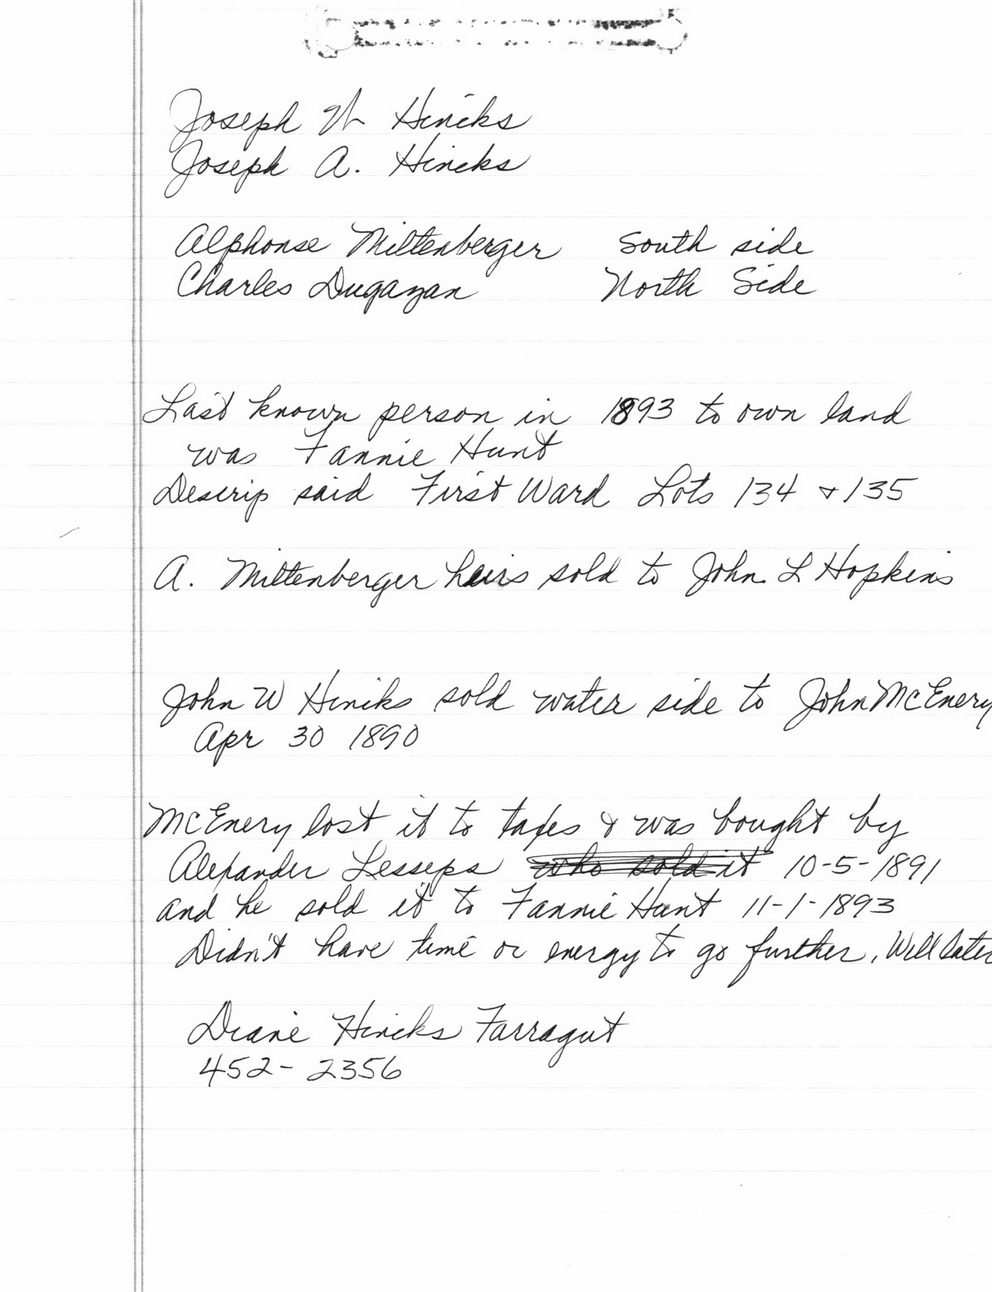 Joseph W Hincks
Joseph A. Hincks
Alphonse Miltenberger South side
Charles Dugazan North Side
Last known person in 1893 to own land
was Fannie Hunt
Descrip said First Ward Lots 134 & 135
A. Miltenberger heirs sold to John L Hopkins
John W Hincks sold water side to John McEnery
Apr 30 1890
McEnery lost it to taxes & was bought by
Alexander Lesseps who sold it 10-5-1891
and he sold it to Fannie Hunt 11-1-1893
Didn't have time or energy to go further. Will later
Diane Hincks Farragut
452-2356